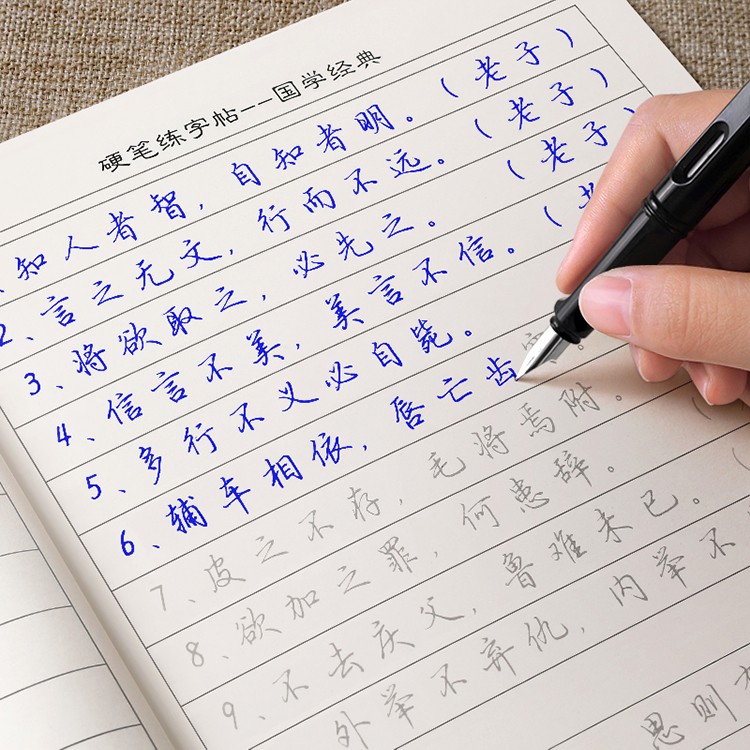 硬笔练字帖--国学经典
、知人者智，自知者明。（老子）
2、言之无文，行而不远。（老子）
3、将欲取之，必先之。（老子
4、信言不美，美言不信。（老
5、多行不义必自毙。
6、辅车相依，唇亡齿寒。
7、皮之不存，毛将焉附。
8、欲加之罪，何患辞。
9、不去庆父，鲁难未已。
外举不弃仇，内举不
思则